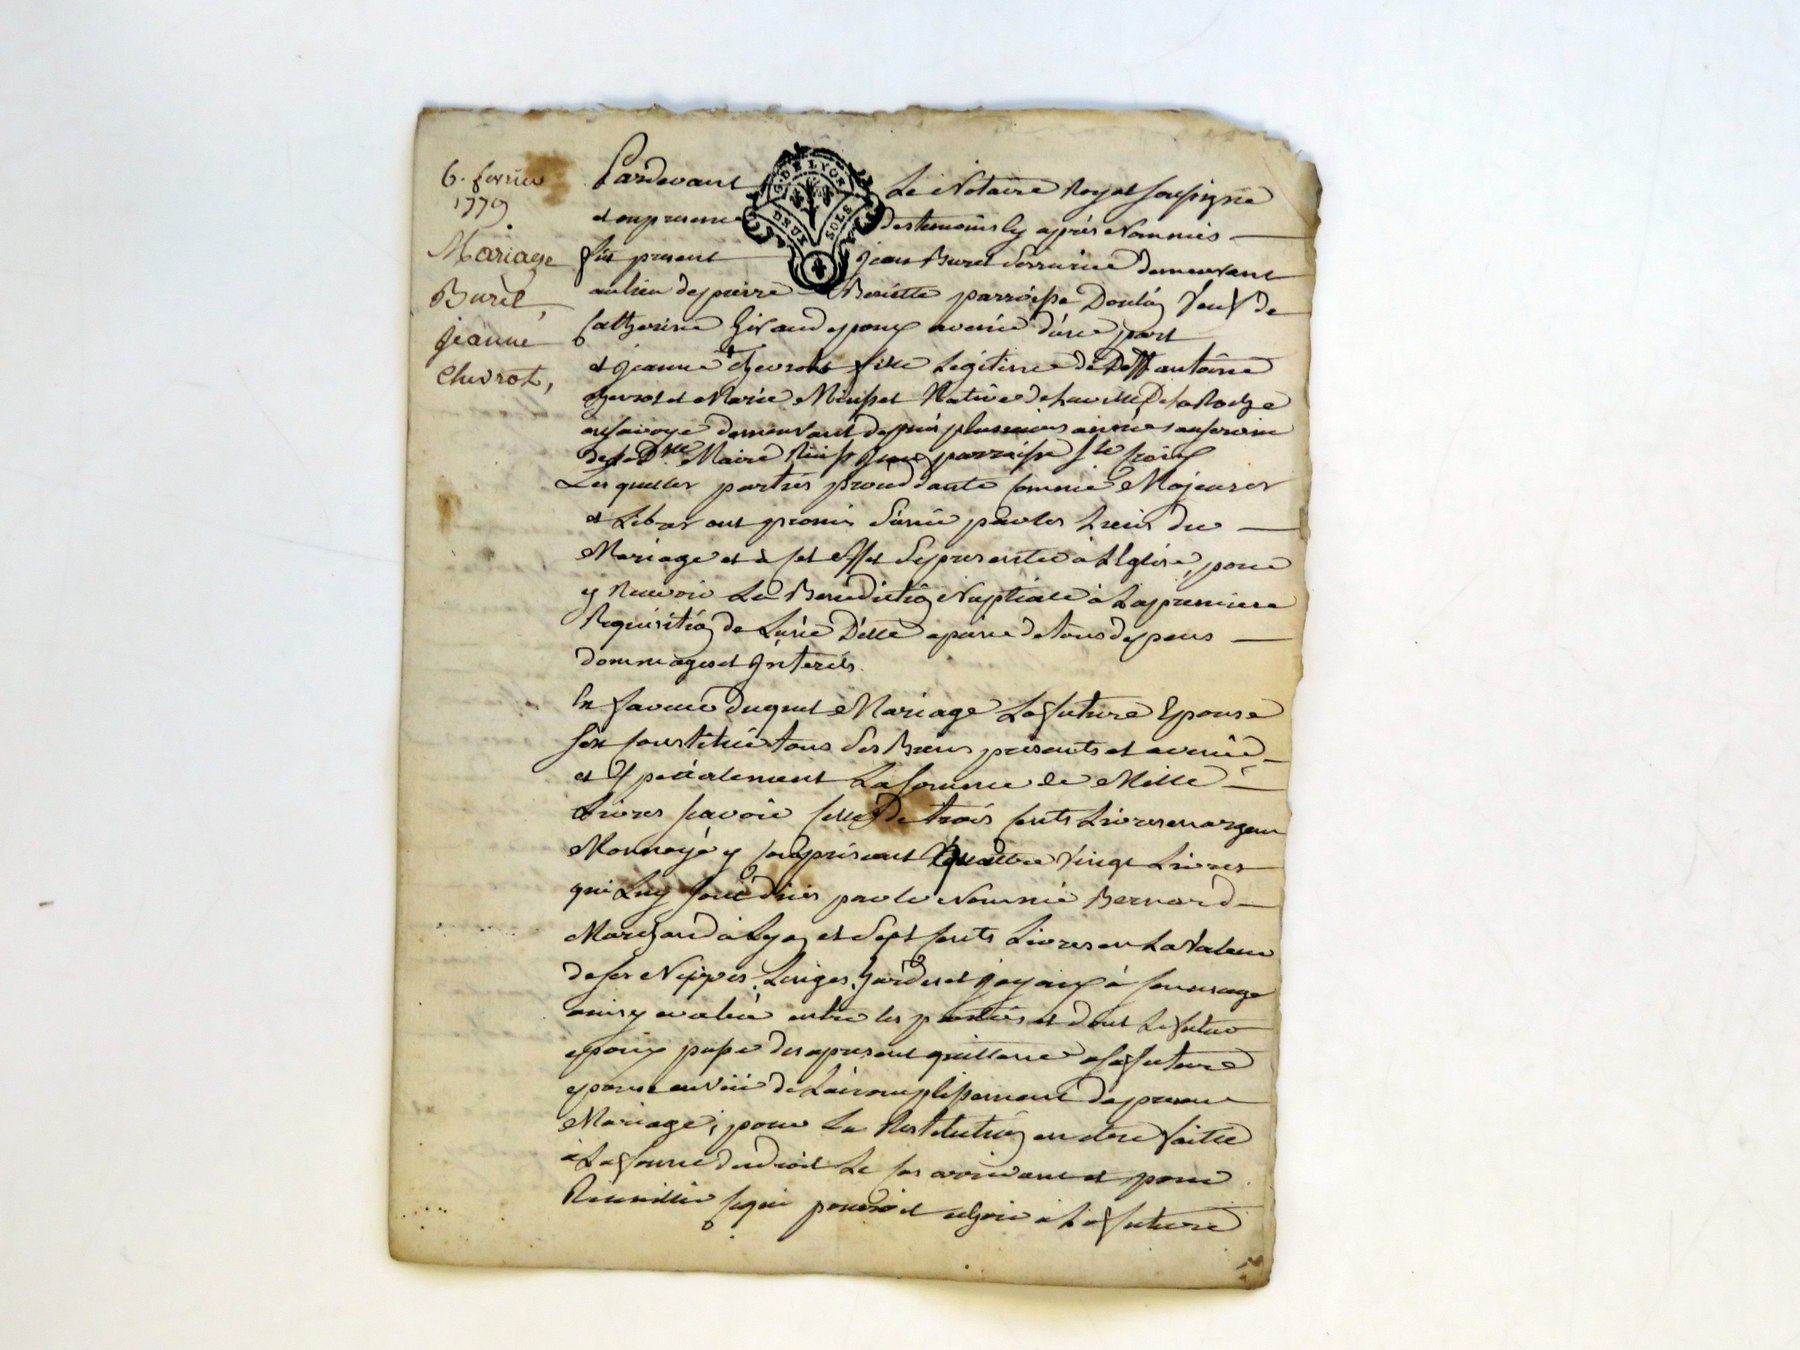 6. fevrier
1779
Mariage
Burel,
jeanne
Chevrot,
G. DE LYON
DEUX SOLS
Pardevant Le Notaire Royal soussigné
et en presence des temoins Cy après Nommés
fut present jean Burel Serrurier demeurant
au lieu de pierre Benitte parroisse Doulin Veuf de
Catherine Giraud epoux avenir d'une part
et jeanne Chevrot fille Légitime de Deff antoine
Chevrot et Marie Native de La ville De La Roche
en Savoye demeurant depuis plusieurs années au service
de la Dlle parroisse Ste foix
Lesquelles parties procedante comme Majeures
et Libres ont promis S'unir par les Liens du
Mariage et à cet effet Se presenter à L'Eglise, pour
y Recevoir La Benediction Nuptiale à La premiere
Requisition de L'une D'elle a peine de tous depens
dommages et jnterets.
En faveur duquel Mariage La future Epouse
S'est Constitué tous Ses Biens presents et avenir
et Specialement La somme de Mille
Livres scavoir celle De trois cents Livres en argent
Monnoyé y Comprisent Quattre Vingt Livres
qui Luy sont dües par le Nommé Bernard
Marchand à Lyon et Sept cents Livres en La Valeur
de ses Nippes, Linges, hardes et joyaux à son usage
ainsy evalué entre les parties et dont Le futur
epoux passe des apresent quittance a La future
epouse en Vüe de L'accomplissement du present
Mariage; pour La Restitution en etre faitte
à La forme du droit Le cas arrivant et pour
Recueillir ce qui pourroit echoir à La future